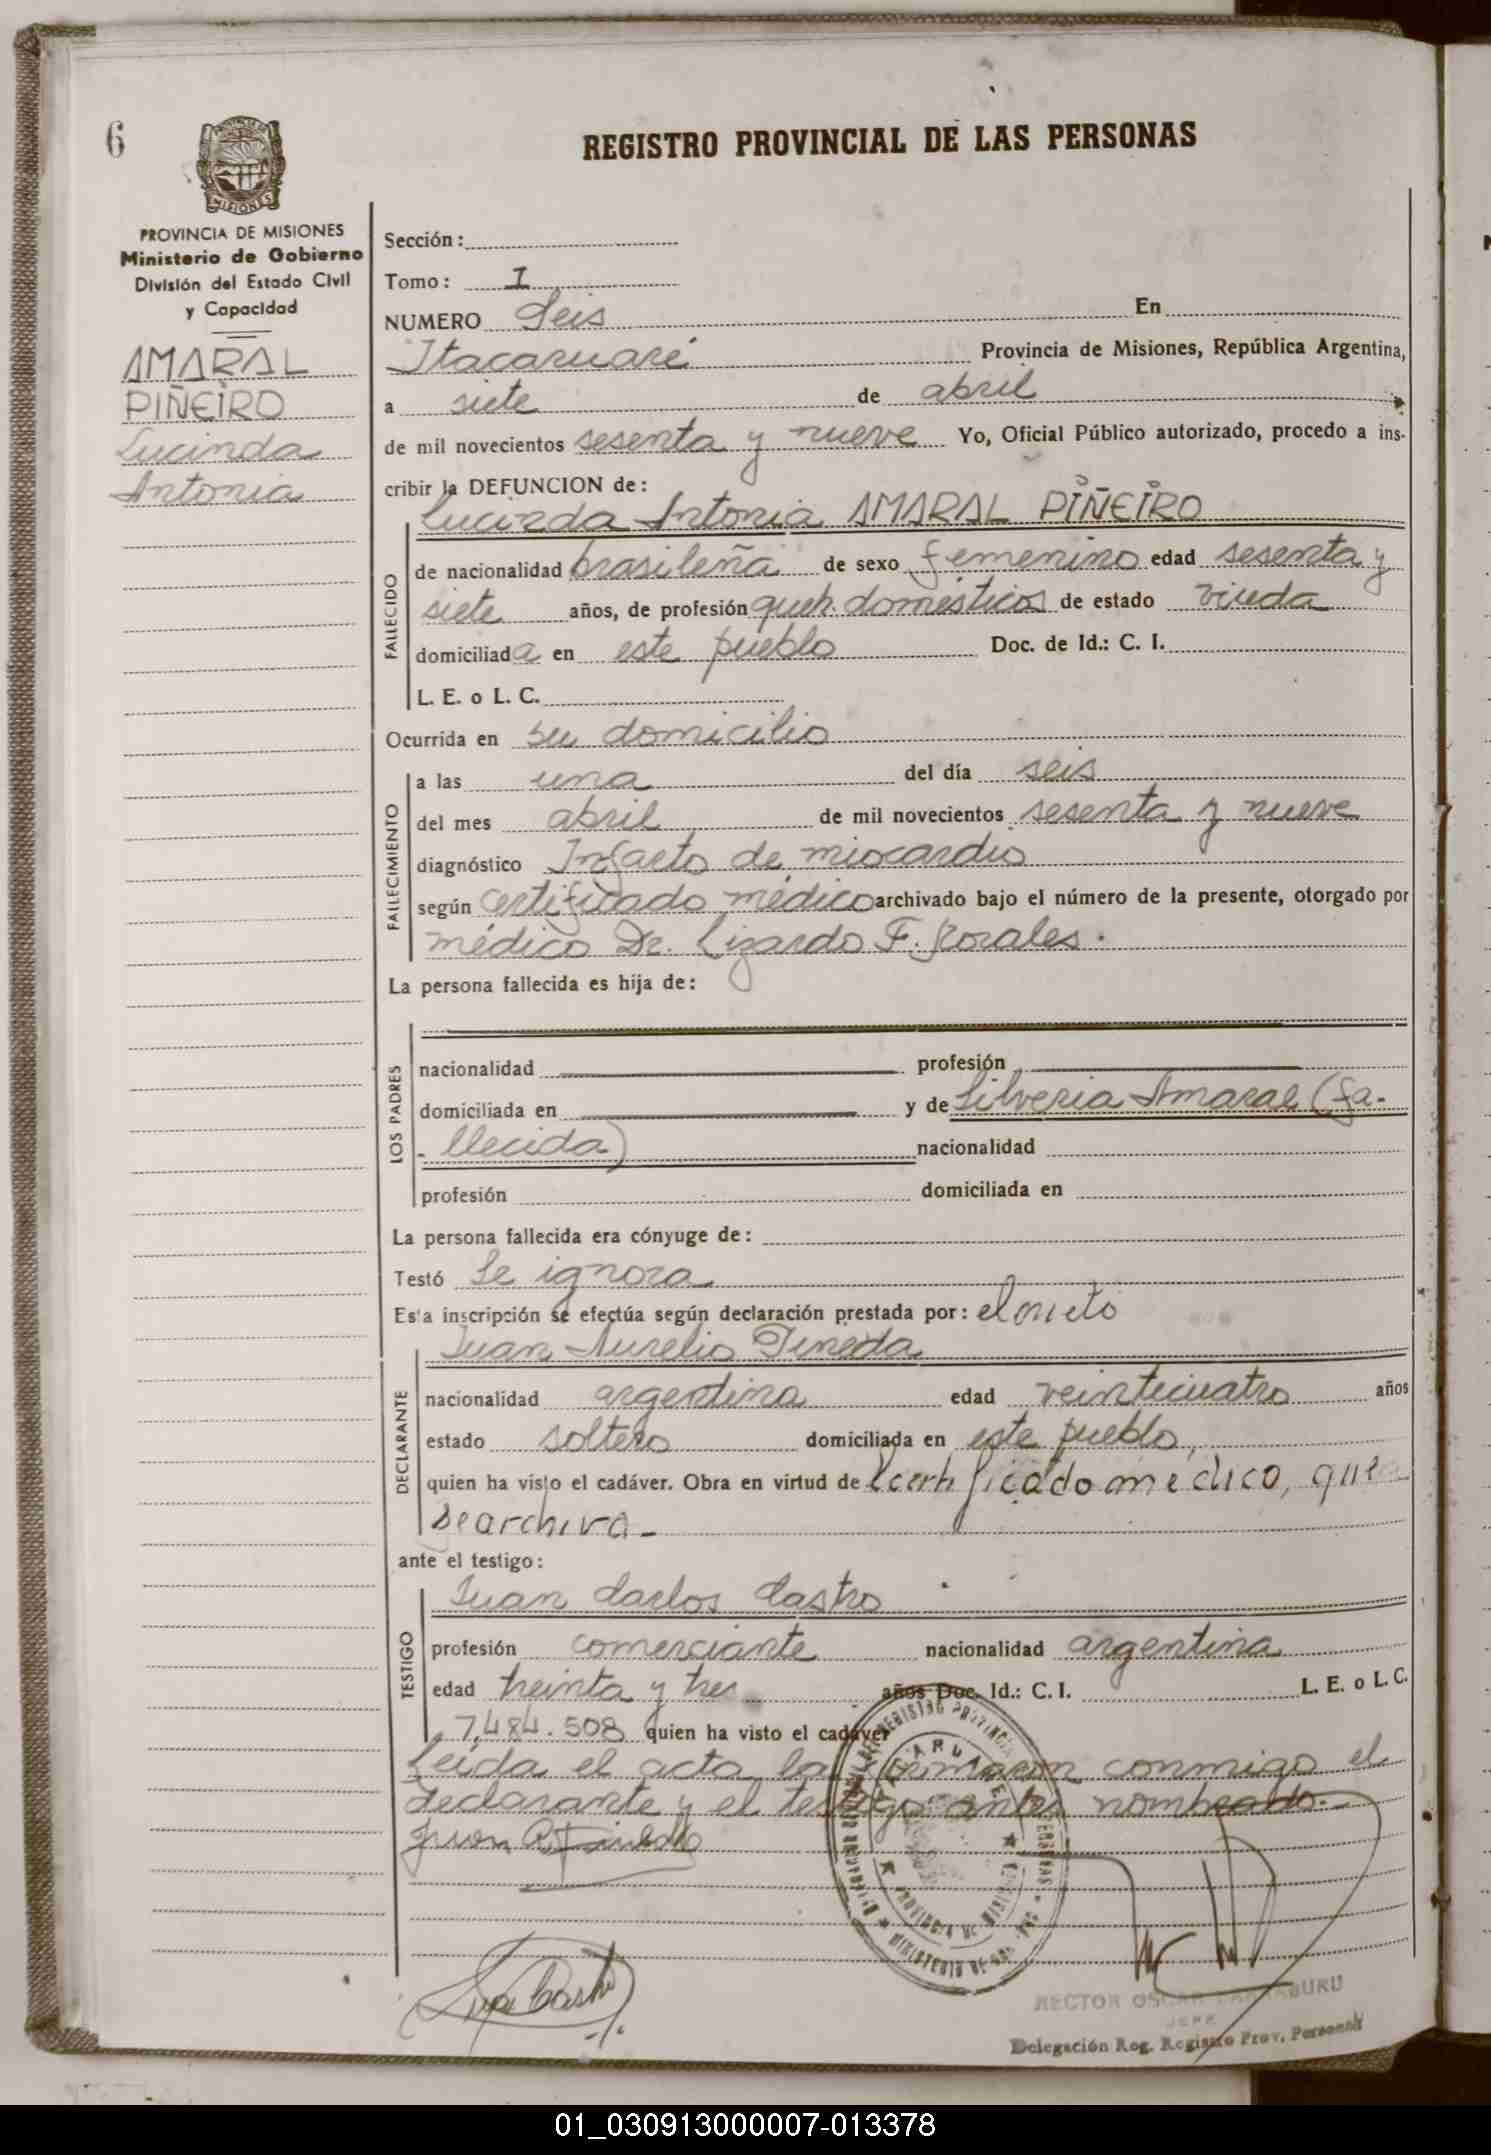 6
PROVINCIA DE
MISIONES
REGISTRO PROVINCIAL DE LAS PERSONAS
PROVINCIA DE MISIONES
Ministerio de Gobierno
División del Estado Civil
y Capacidad
AMARAL
PIÑEIRO
Lucinda
Antonia
Sección:
Tomo: I
NUMERO Seis En
Itacaruaré Provincia de Misiones, República Argentina,
a siete de abril
de mil novecientos sesenta y nueve Yo, Oficial Público autorizado, procedo a ins-
cribir la DEFUNCION de:
Lucinda Antonia AMARAL PIÑEIRO
FALLECIDO
de nacionalidad brasileña de sexo femenino edad sesenta y
siete años, de profesión queh. domésticos de estado viuda
domiciliada en este pueblo Doc. de Id.: C. I.
L. E. o L. C.
Ocurrida en su domicilio
FALLECIMIENTO
a las una del día seis
del mes abril de mil novecientos sesenta y nueve
diagnóstico Infarto de miocardio
según certificado médico archivado bajo el número de la presente, otorgado por
médico Dr. Lizardo F.
La persona fallecida es hija de:
LOS PADRES
nacionalidad profesión
domiciliada en y de Silveria Amaral (fa-
- llecida) nacionalidad
profesión domiciliada en
La persona fallecida era cónyuge de:
Testó Se ignora
Esta inscripción se efectúa según declaración prestada por: el nieto
Juan Aurelio Pineda
DECLARANTE
nacionalidad argentina edad veinticuatro años
estado soltero domiciliada en este pueblo,
quien ha visto el cadáver. Obra en virtud de certificado médico, que
se archiva-
ante el testigo:
Juan Carlos Castro
TESTIGO
profesión comerciante nacionalidad argentina
edad treinta y tres años Doc. Id.: C. I. L. E. o L. C.
7.484.508 quien ha visto el cadáver
Leída el acta la firmaron conmigo el
declarante y el testigo antes nombrado.-
Juan A. Pineda
ITACARUARE
PROVINCIA DE MISIONES
MINISTERIO DE
HECTOR OSCAR
JEFE
Delegación Reg. Registro Prov. Personas
01_030913000007-013378